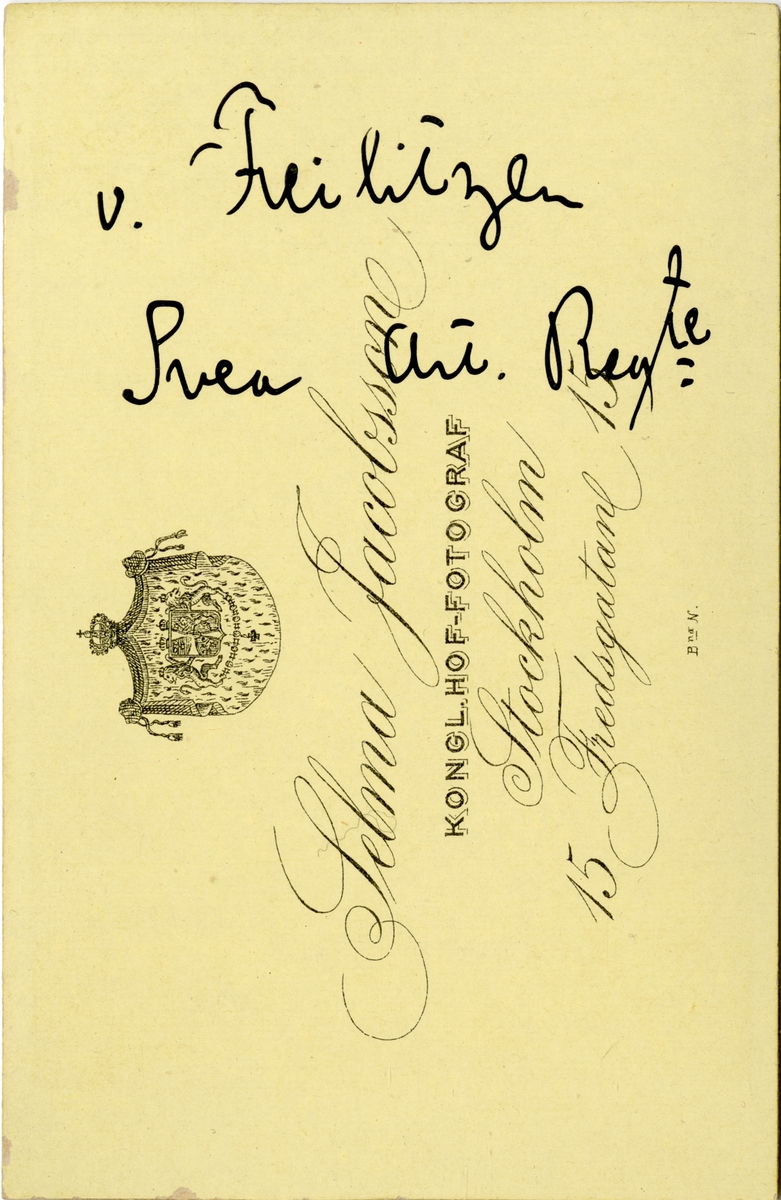 v. Feilitzen
Svea Art. Regte
Selma Jacobsson
KONGL. HOF-FOTOGRAF
Stockholm
15 Fredsgatan 15
Bna N.